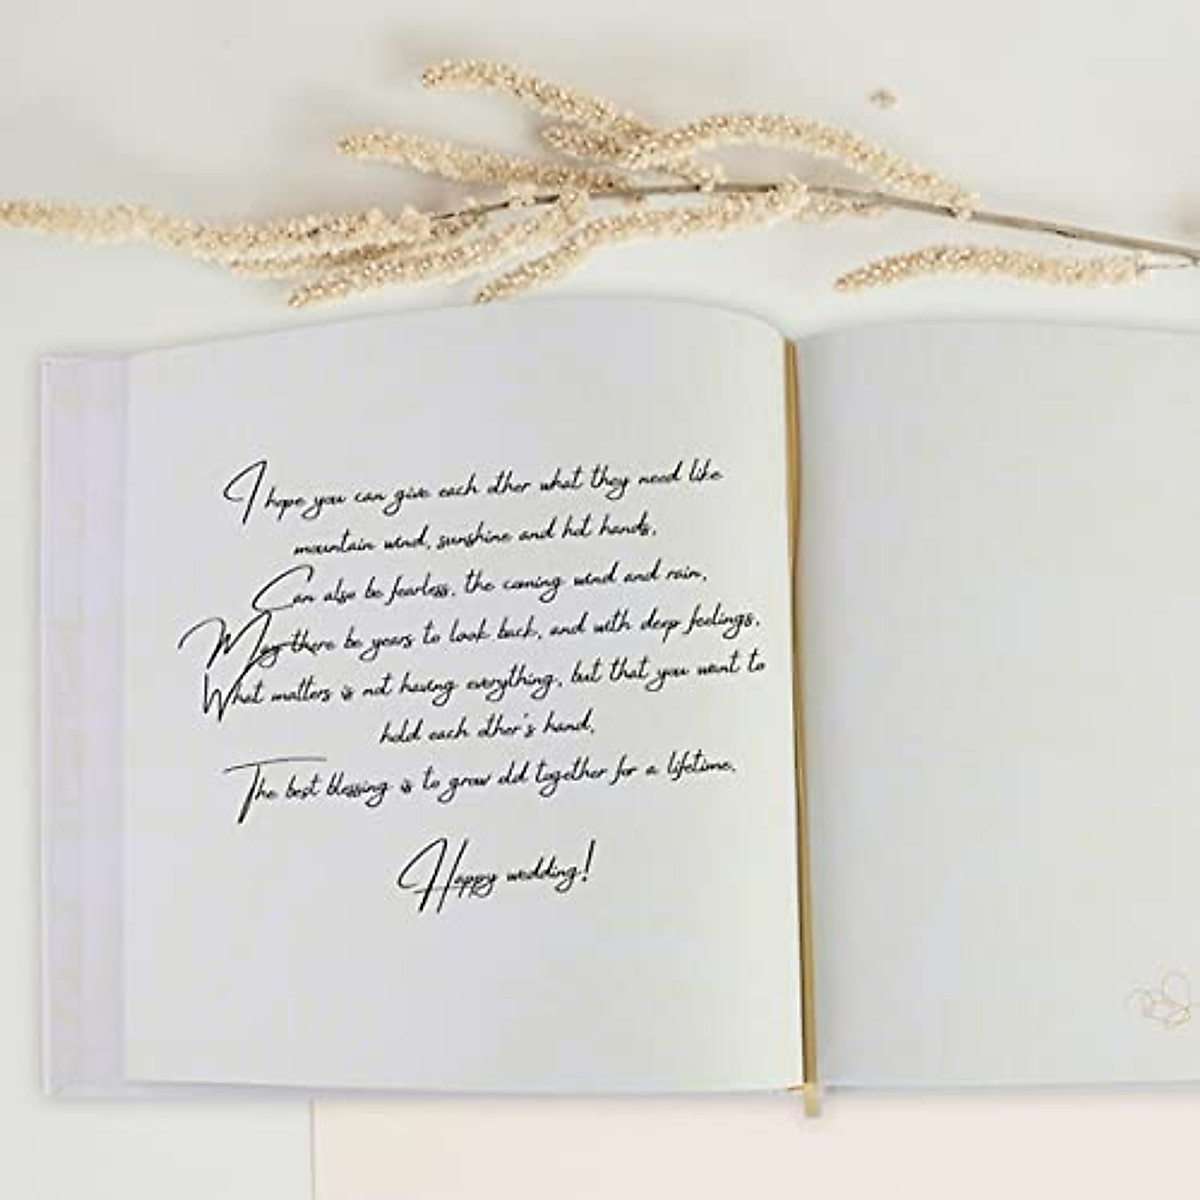 I hope you can give each other what they need like
mountain wind, sunshine and hot hands,
Can also be fearless, the coming wind and rain,
May there be years to look back, and with deep feelings,
What matters is not having everything, but that you want to
hold each other's hand,
The best blessing is to grow old together for a lifetime,
Happy wedding!